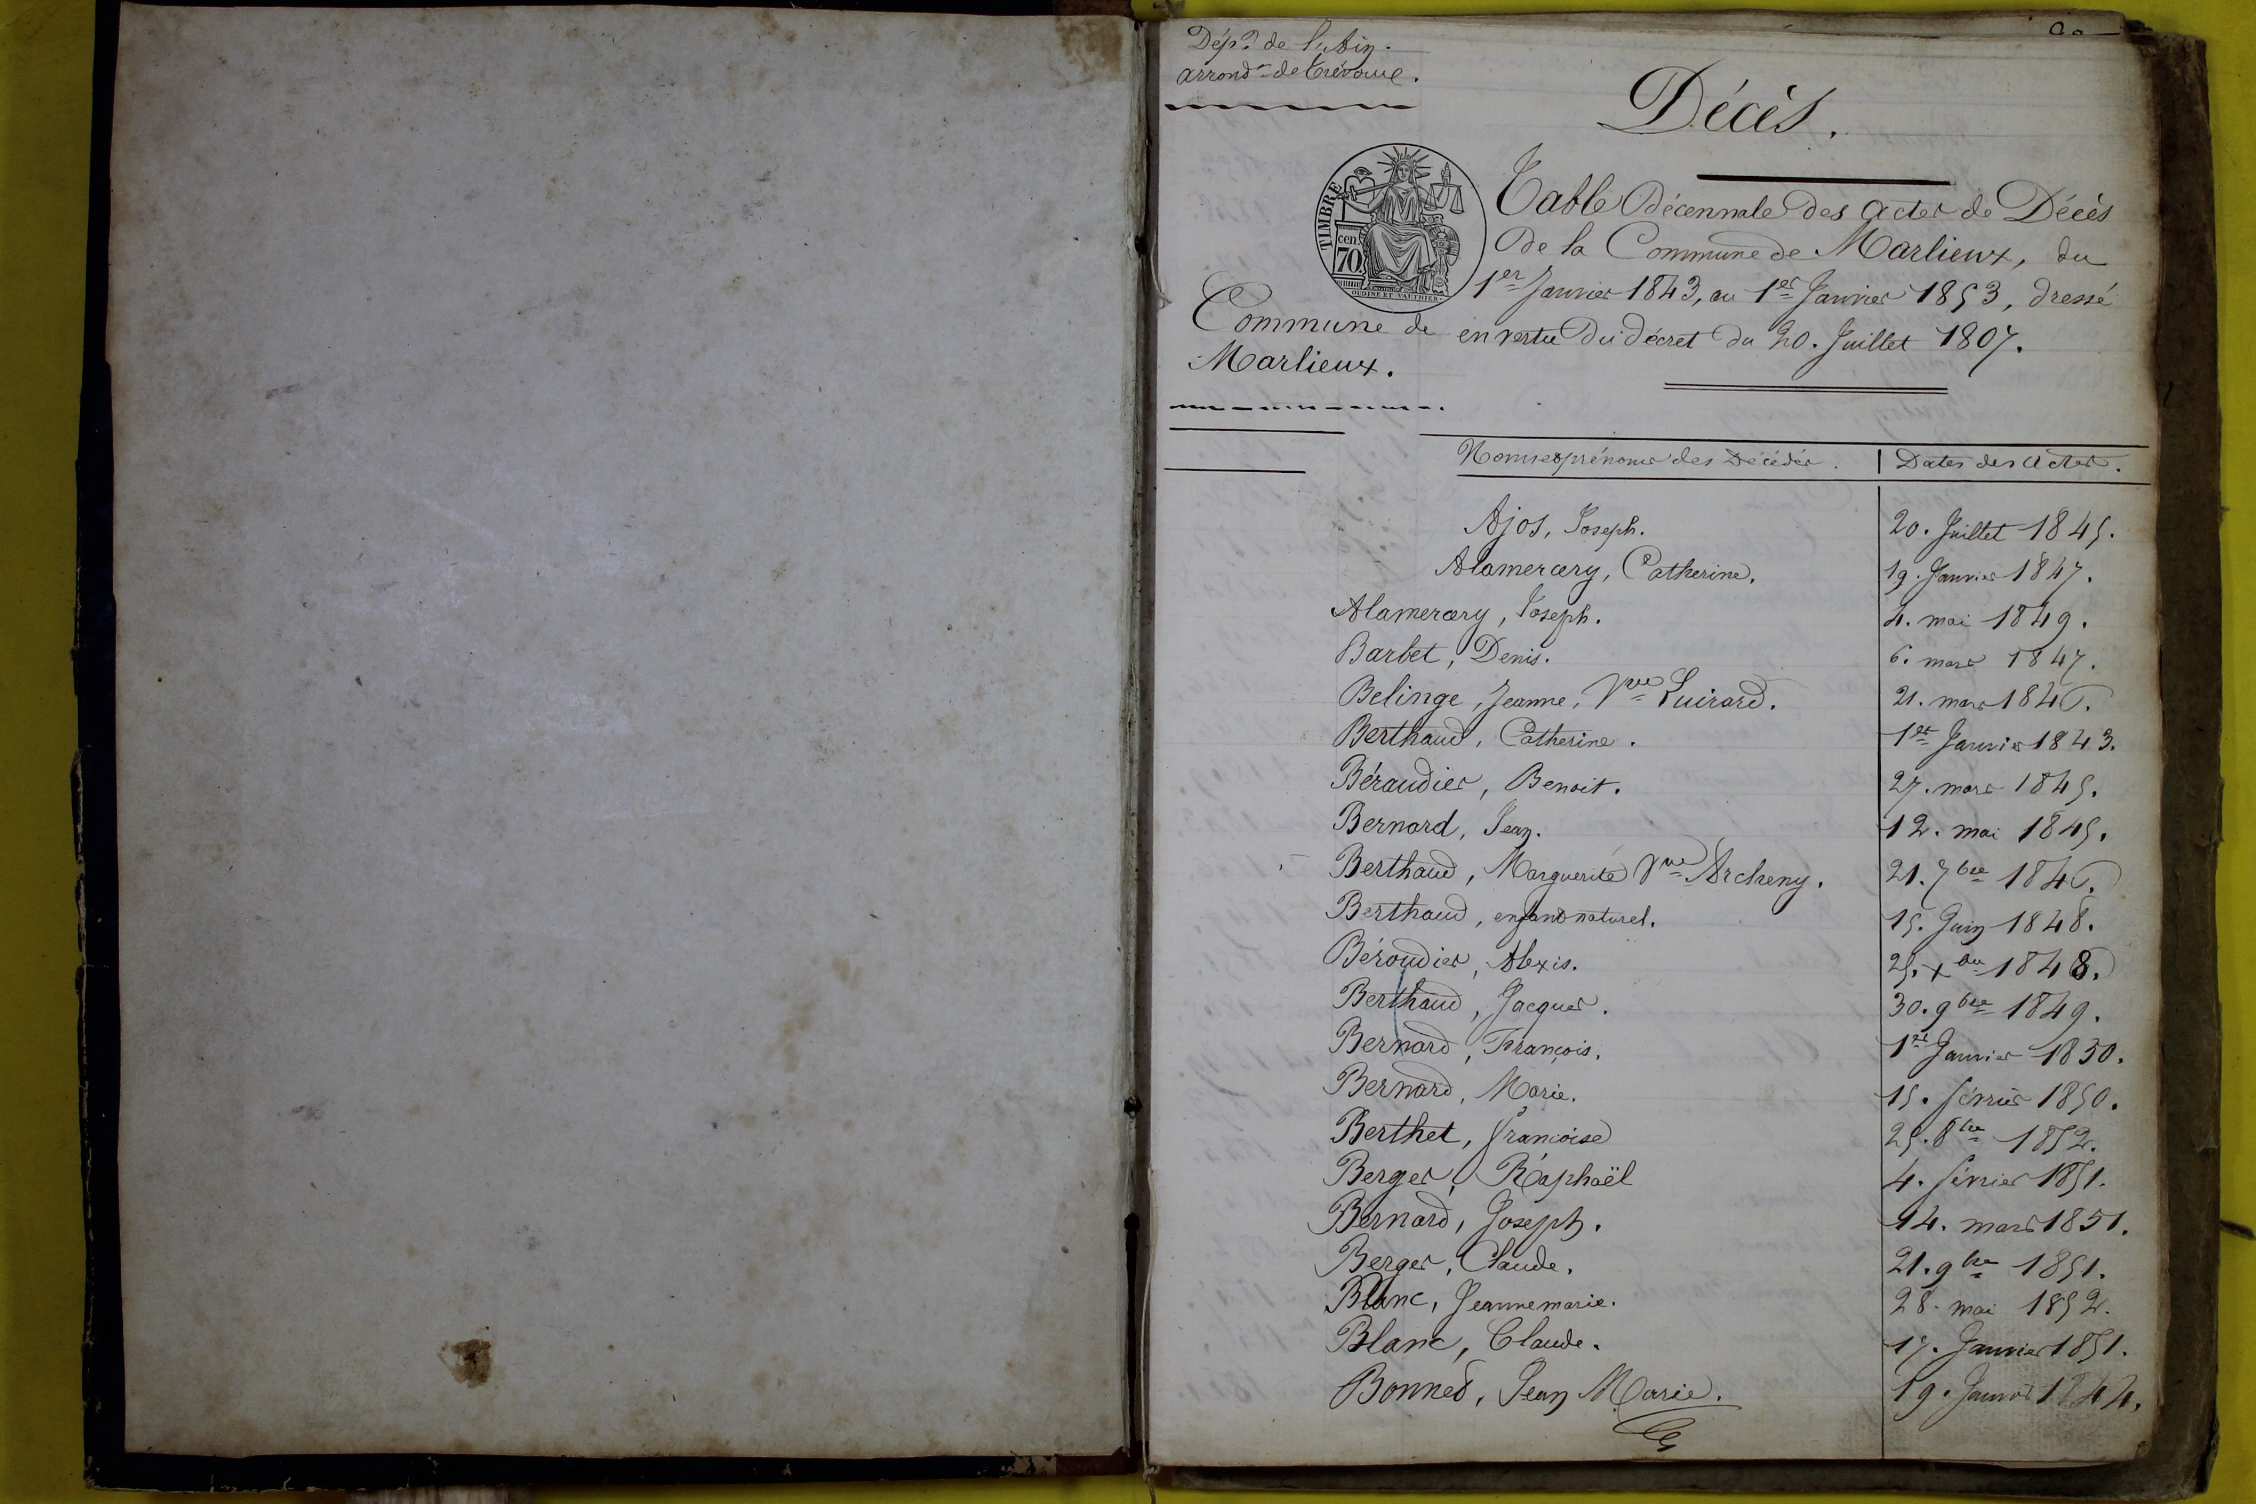 Dépt de l'Ain.
arrondt de Trévoux.
Décès.
TIMBRE
70 cen
OUDINE ET VAUTHIER
Table Décennale des Actes de Décès
de la Commune de Marlieux, du
1er Janvier 1843, au 1er Janvier 1853, dressé
en vertu du décret du 20. Juillet 1807.
Commune de
Marlieux.
Noms et prénoms des Décédés. Dates des Actes.
Ajos, Joseph. 20. Juillet 1845.
Alamercery, Catherine. 19. Janvier 1847.
Alamercery, Joseph. 4. mai 1849.
Barbet, Denis. 6. mars 1847.
Belinge, Jeanne, Vve Guirard. 21. mars 1846.
Berthaud, Catherine. 1er Janvier 1843.
Béraudier, Benoit. 27. mars 1845.
Bernard, Jean. 12. mai 1845.
Berthaud, Marguerite Vve Archeny. 21. 7bre 1846.
Berthaud, enfant naturel. 15. Juin 1848.
Béraudier, Alexis. 25. xbre 1848.
Berthaud, Jacques. 30. 9bre 1849.
Bernard, François. 1er Janvier 1850.
Bernard, Marie. 15. février 1850.
Berthet, françoise 25. 8bre 1852.
Berger, Raphaël 4. février 1851.
Bernard, Joseph. 14. mars 1851.
Berger, Claude. 21. 9bre 1851.
Blanc, Jeanne marie. 28. mai 1852.
Blanc, Claude. 17. Janvier 1851.
Bonned, Jean Marie. 19. Janvier 1844.